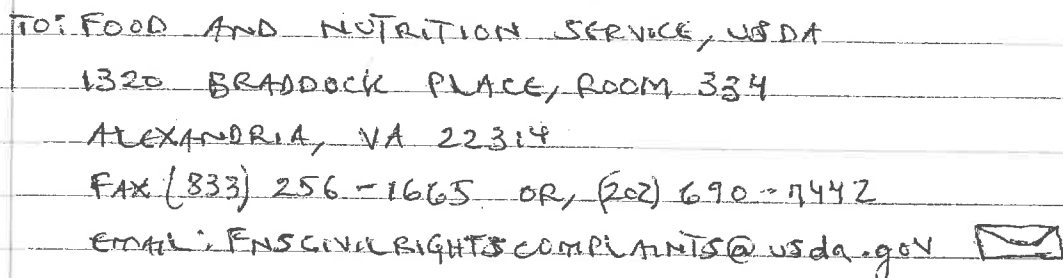 TO: FOOD AND NUTRITION SERVICE, USDA
1320 BRADDOCK PLACE, ROOM 334
ALEXANDRIA, VA 22314
FAX (833) 256-1665 OR, (202) 690-7442
EMAIL: FNSCIVILRIGHTSCOMPLAINTS@usda.gov